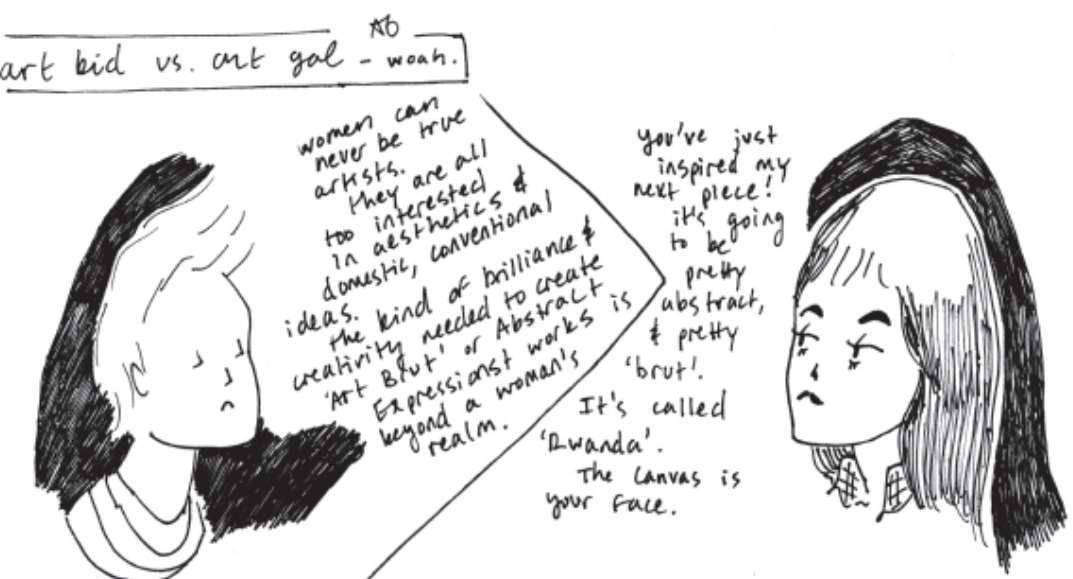 art kid vs. art gal - woah.
women can
never be true
artists.
they are all
too interested
in aesthetics &
domestic, conventional
ideas.
the kind of brilliance &
creativity needed to create
'Art Brut' or Abstract
Expressionst works is
beyond a woman's
realm.
you've just
inspired my
next piece!
it's going
to be
pretty
abstract,
& pretty
'brut'.
It's called
'Rwanda'.
The canvas is
your face.